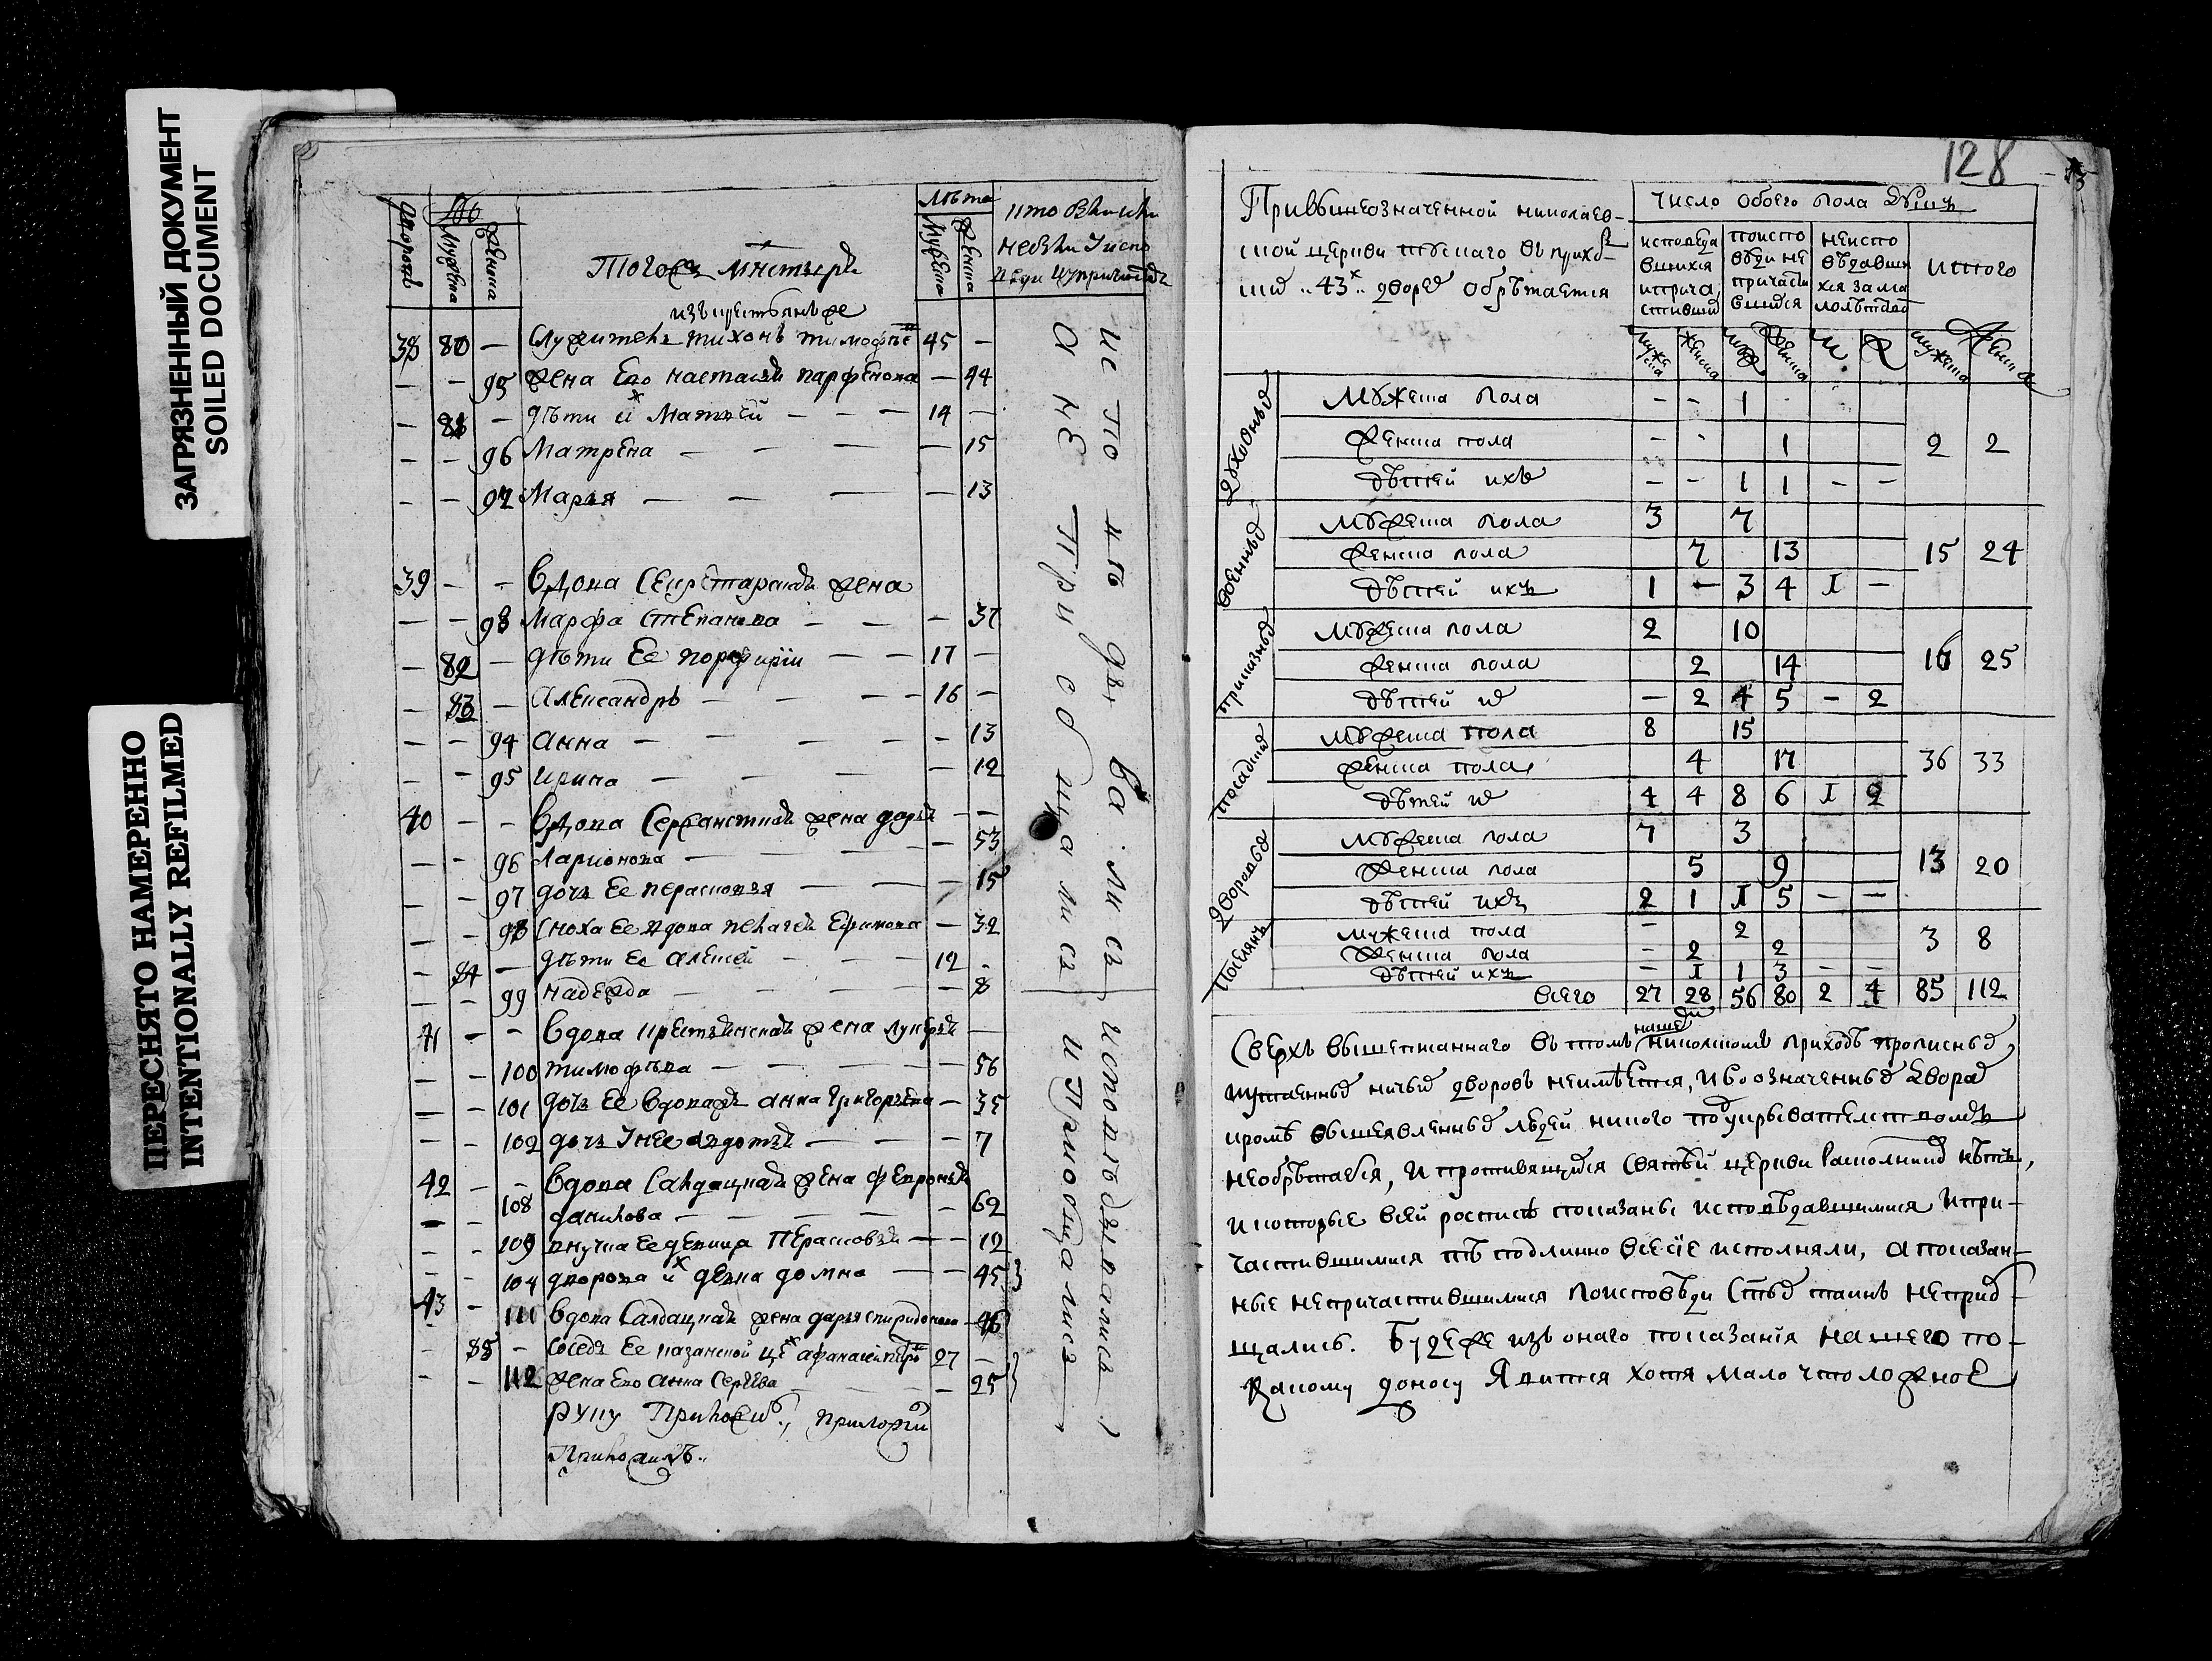 ЗАГРЯЗНЕННЫЙ ДОКУМЕНТ
SOILED DOCUMENT
ПЕРЕСНЯТО НАМЕРЕННО
INTENTIONALLY REFILMED
Лѣта
38 80 — Служитель тихонъ 45 —
— — 95 жена Ево настасья парфенова — 44
— 81 — дѣти их Матвей — — — 14 —
— — 96 Матрена — — — — 15
— — 97 Марья — — — — 13
39 — — вдова Секретарская жена
— — 98 Марфа степанова — — — 37
— 82 — дѣти Ее порфирiи — — 17 —
— 83 — Александръ — — — 16 —
— — 94 анна — — — — 13
— — 95 ирина — — — — 12
40 — — вдова Сержанская жена дарья — —
— — 96 Ларионова — — — 53
— — 97 дочь Ее парасковья — — — 15
— — 98 сноха Ее вдова пелагея Ефимова — 32
— 84 — дѣти Ее алексей — — 12 -
— — 99 надежда — — — — 8
41 — — вдова крестьянская жена лукерья —
— — 100 тимофѣва — — — — 56
— — 101 дочь Ее вдовая анна григорьева — 35
— — 102 дочь у нее авдотья — — — 7
42 — — вдова Салдацкая жена февронья
— — 108 данилова — — — — 62
— — 109 внучка Ее девица Перасковья — — 12
— — 104 дворова их девка домна — — 45
43 — 111 вдова Салдацкая жена дарья спиридонова — 46
— 85 — Соседъ Ее казанской афанасеи 27 —
— — 112 жена Ево анна Сергева — 25
исповѣдывались а не приобщались
исповѣдывались и приобщались
128
Привышеозначенной николаев-
ской церкви
43 дворех обрѣтается
число обоего пола душъ
исповеда
вшихся
и прича
стивших
поиспо
вѣди не
причасти
вшихся
неиспо
вѣдавши
хся за ма
лолѣтст
итого
духовных
Мужеска пола — — 1 -
Женска пола — - 1 2 2
дѣтей ихъ — — 1 1 — —
военных
Мужеска пола 3 7
Женска пола 7 13 15 24
дѣтей ихъ 1 — 3 4 1 —
приказных
Мужеска пола 2 10
Женска пола 2 14 16 25
дѣтей их — 2 4 5 — 2
посадских
Мужеска пола 8 15
Женска пола 4 17 36 33
дѣтей их 4 4 8 6 1 2
дворовых
Мужеска пола 7 3
Женска пола 5 9 13 20
дѣтей ихъ 2 1 1 5 — —
Поселянъ
Мужеска пола — 2 3 8
Женска пола — 2 2
дѣтей ихъ — 1 1 3 — —
всего 27 28 56 80 2 4 85 112
Сверхъ вышеписаннаго въ томъ нашемъ николскомъ приходѣ прописных
и утаенных ничьих дворовъ неимѣется, и во означенных дворах
кромѣ вышеявленных людей никого под укрывателством
необрѣтается, и противящихся Святѣй церкви расколников нѣтъ,
и которые всей росписѣ показаны исповѣдавшимися и при-
частившимися тѣ подлинно все сiе исполняли, а показан-
ные непричастившимися поисповѣди Стых таинъ неприоб
щались. Буде же изъ онаго показанiя нашего по
какому доносу Явится хотя мало что ложное